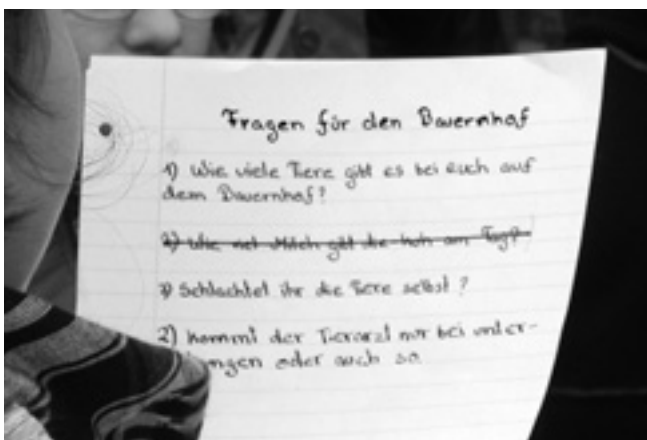 Fragen für den Bauernhof
1) Wie viele Tiere gibt es bei euch auf
dem Bauernhof?
2) Wie viel Milch gibt die Kuh am Tag?
3) Schlachtet ihr die Tiere selbst?
2) Kommt der Tierarzt nur bei unter-
ungen oder auch so.